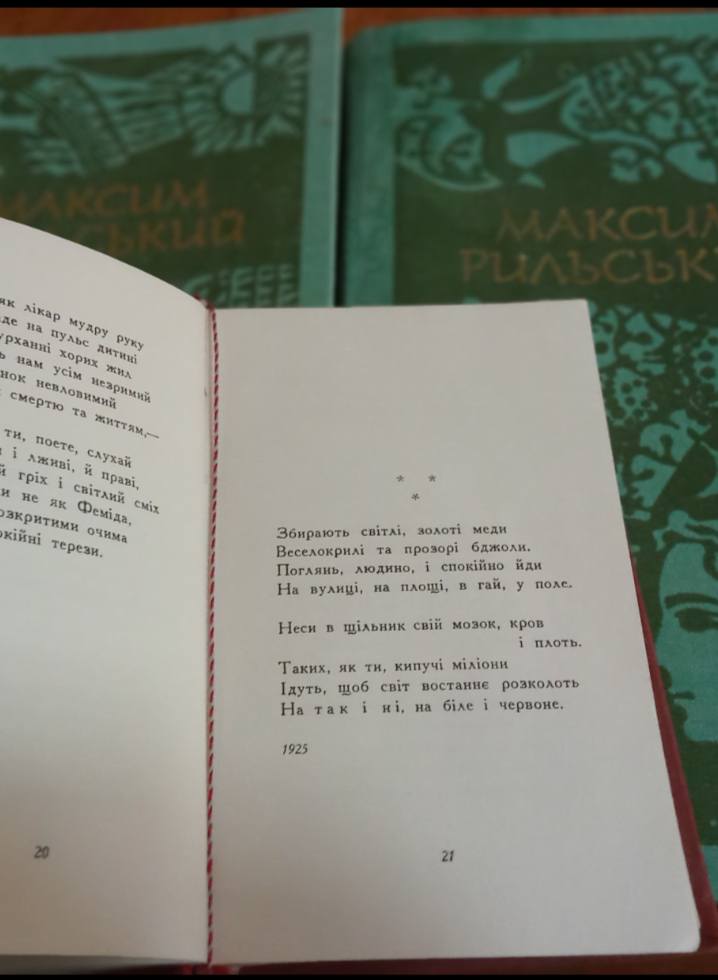 МАКСИМ
МАКСИМ
РИЛЬСЬК
як лікар мудру руку
на пульс дитині
хорих жил
нам усім незримий
невловимий
смертю та життям,—
ти, поете, слухай
і лживі, й праві,
гріх і світлий сміх
не як Феміда,
очима
терези.
20
* *
*
Збирають світлі, золоті меди
Веселокрилі та прозорі бджоли.
Поглянь, людино, і спокійно йди
На вулиці, на площі, в гай, у поле.
Неси в щільник свій мозок, кров
і плоть.
Таких, як ти, кипучі міліони
Ідуть, щоб світ востаннє розколоть
На т а к і н і, на біле і червоне.
1925
21